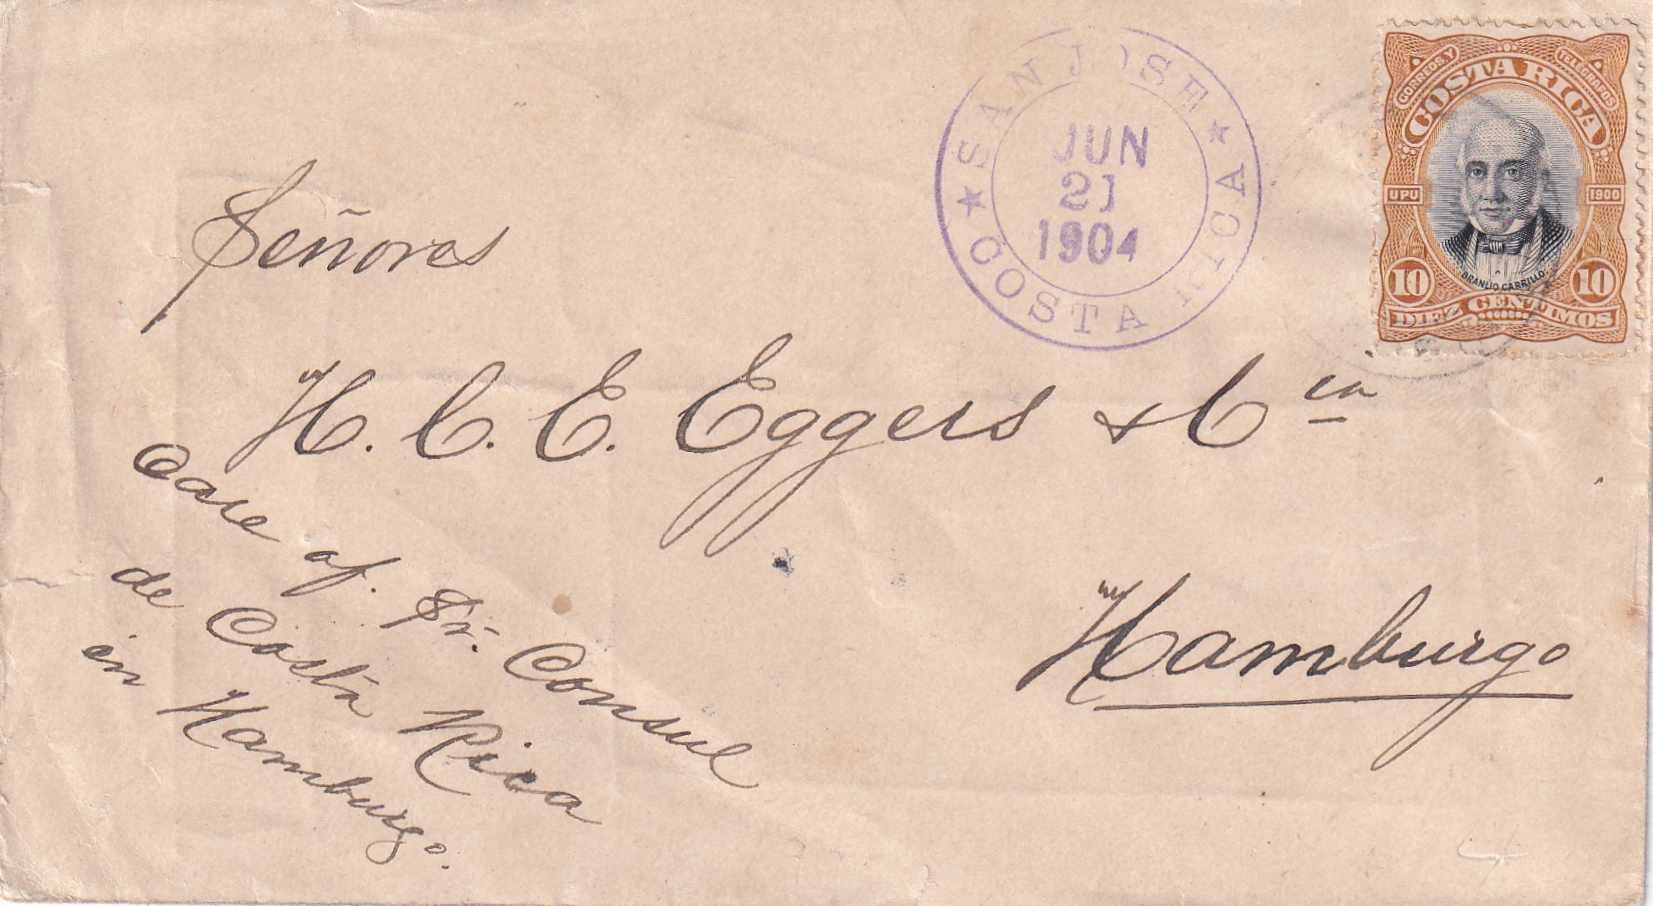 SAN JOSE
JUN
21
1904
COSTA RICA
CORREOS Y TELEGRAFOS
COSTA RICA
UPU 1900
BRAULIO CARRILLO
10 10
DIEZ CENTIMOS
Señores
H. C. E. Eggers & Cia
Hamburgo
Care of. Sr. Consul
de Costa Rica
en Hamburgo.